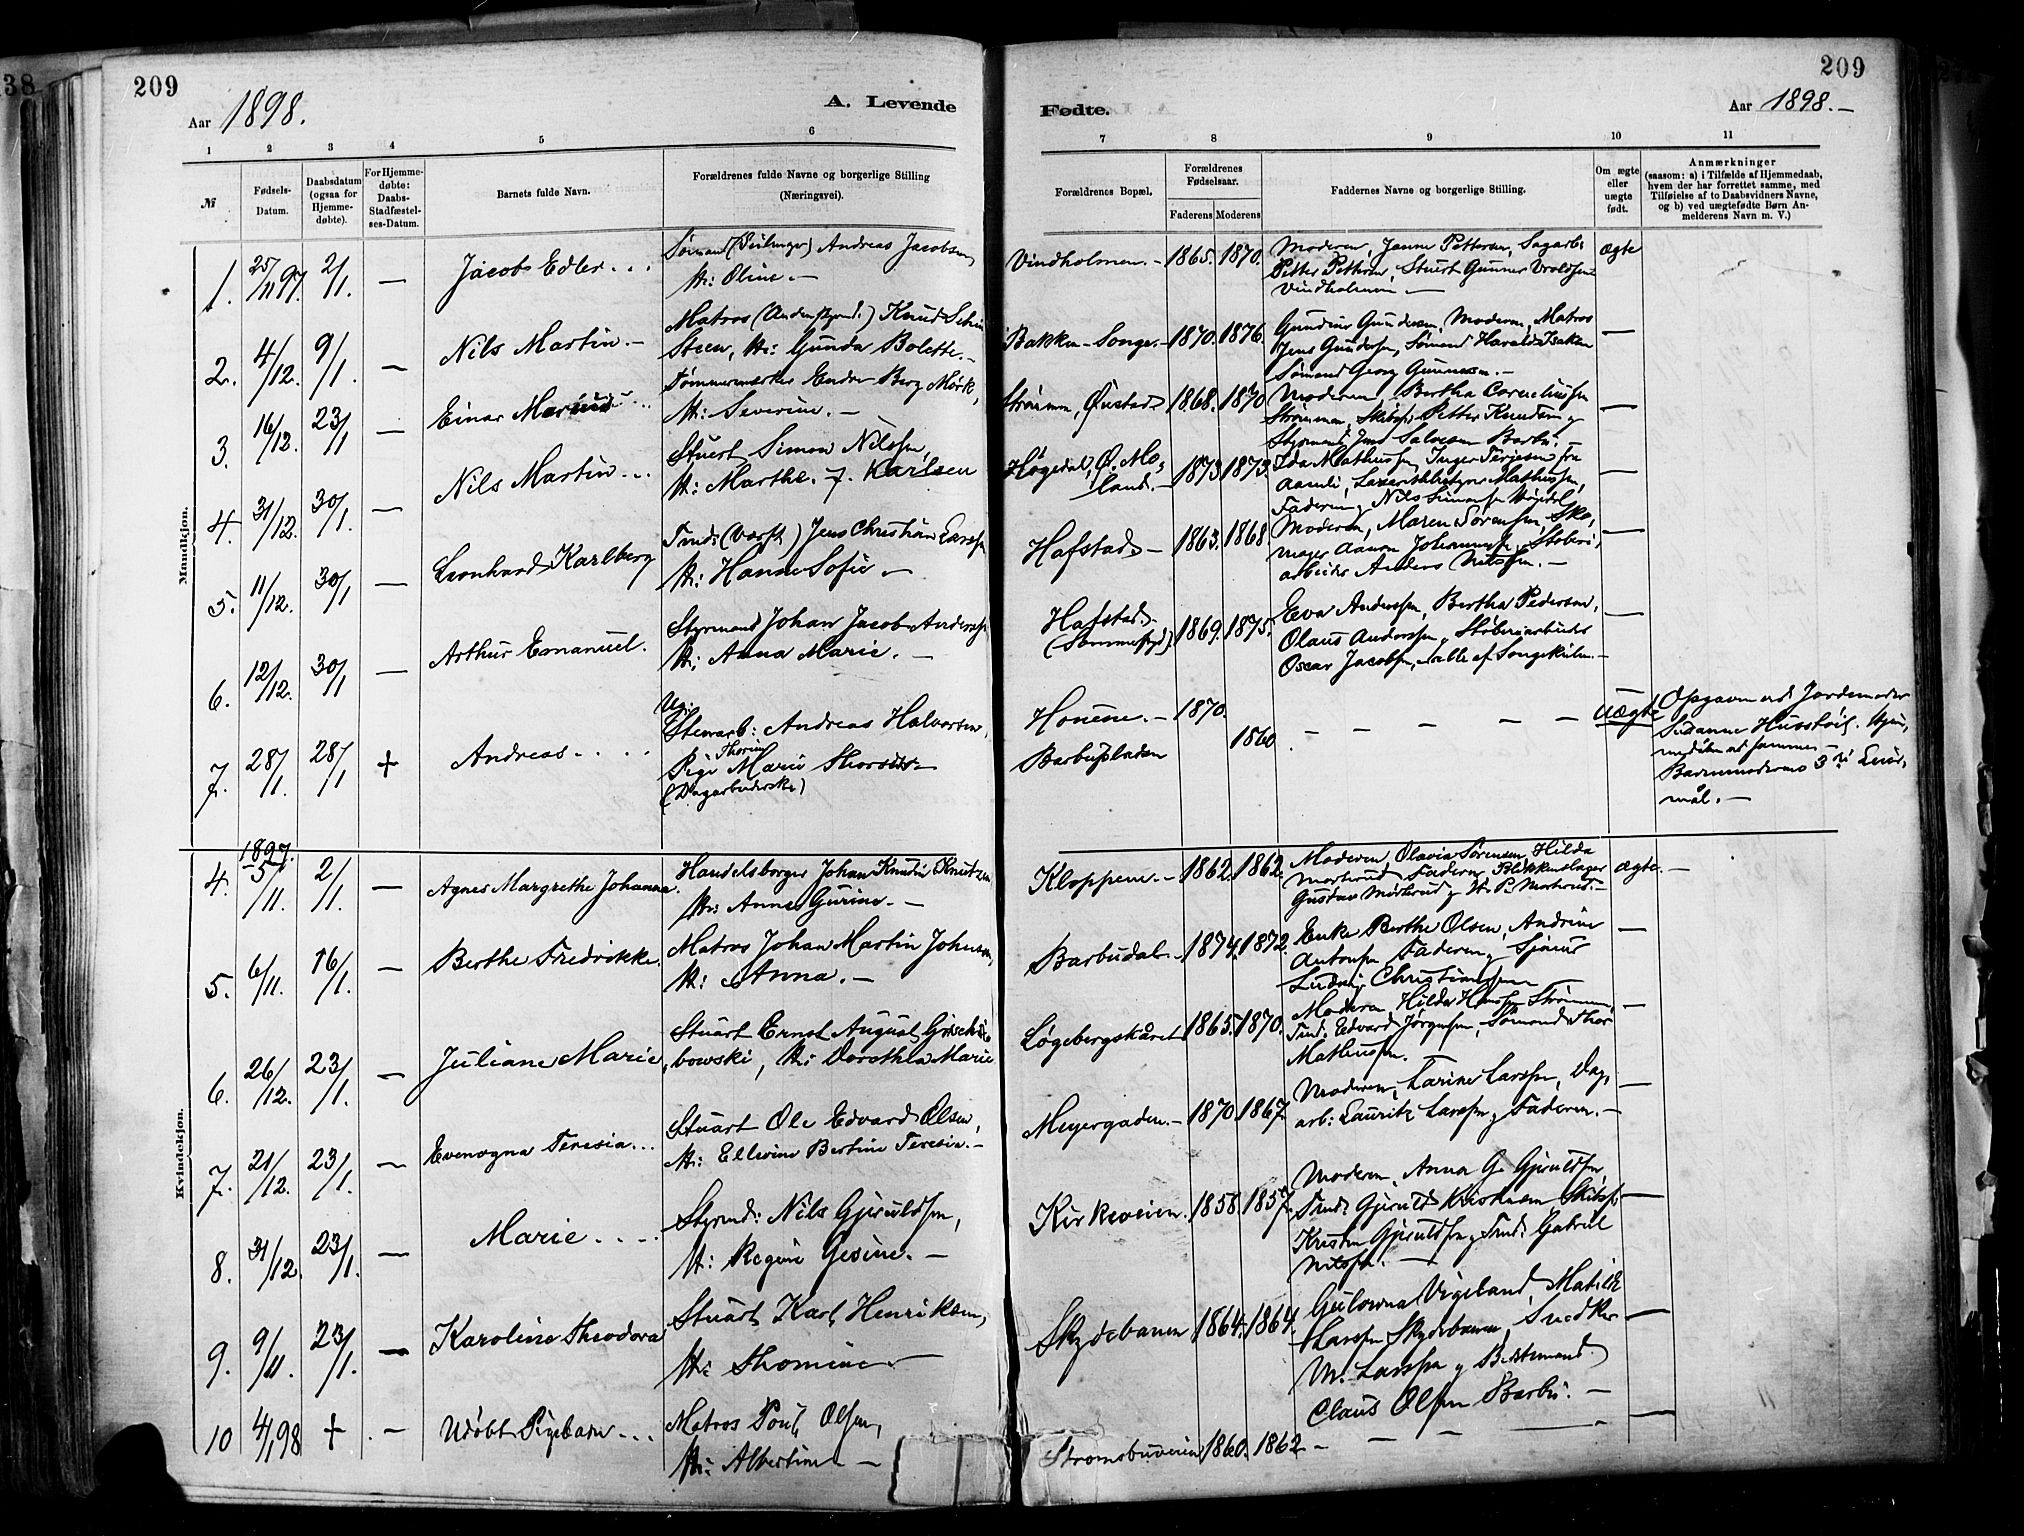 38
209
209
Aar 1898.
A. Levende
Fødte.
Aar 1898.—
1 2 3 4 5 6
7 8 9 10 11
№
Fødsels-
Datum.
Daabsdatum
(ogsaa for
Hjemme-
døbte).
For Hjemme-
døbte:
Daabs-
Stadfæstel-
ses-Datum.
Barnets fulde Navn.
Forældrenes fulde Navne og borgerlige Stilling
(Næringsvei).
Forældrenes Bopæl.
Forældrenes
Fødselsaar.
Faderens Moderens
Faddernes Navne og borgerlige Stilling.
Om ægte
eller
uægte
født.
Anmærkninger
(saasom: a) i Tilfælde af Hjemmedaab,
hvem der har forrettet samme, med
Tilføielse af to Daabsvidners Navne,
og b) ved uægtefødte Børn An-
melderens Navn m. V.)
Mandkjøn.
1. 25/11 97. 2/1. — Jacob Edler...
Sømand Andreas Jacobsen
H: Oline.—
Vindholmen.— 1865. 1870.
Moderen, Janne Pettersen, Sagarb:
Petter Pettersen, Stuert Gunner
Vindholmen —
ægte
2. 4/12. 9/1. — Nils Martin.—
Matros Knud
Steen, H: Gunda Bolette.—
Bakken—Songe.— 1870. 1876.
Gundersen, Moderen, Matros
Jens Gundersen, Sømand Harald Isaksen
Sømand Georg Gunnersen.—
—
3. 16/12. 23/1 — Einar Marius...
Tømmermærker Endre Berg Mørk,
H: Severine.—
Strømmen, Øiestad 1868. 1870
Moderen, Bertha Corneliussen
Strømmen, Skibsf: Petter Knudsen og
Styrmand Jens Salvesen Barbu.
—
4. 31/12. 30/1. — Nils Martin...
Stuert Simon Nilssen,
H: Marthe. f. Karlsen
Høgedal, Ø. Mo-
land.— 1873 1873.
Ida Mathissen, Inger Terjesen fra
Aamli, Mathissen,
Faderen og Nils Simonsen Høgedal
—
5. 11/12. 30/1 — Leonhard Karlberg
Tmd: (Værft) Jens Christian Larssen
H: Hanne Sofie —
Hafstad— 1863. 1868
Moderen, Maren Sørensen, Sko-
mager Aanon Johannessen, Støberi-
arbeider Anders Nilssen.—
—
6. 12/12. 30/1 — Arthur Emanuel.
Styrmand Johan Jacob Anderssen
H: Anna Marie.—
Hafstad
1869. 1875.
Eva Anderssen, Bertha Pedersen,
Olaus Anderssen og Støberiarbeider
Oscar Jacobsen, alle af Songekilen.—
—
7. 28/1. 28/1 + Andreas....
Ug:
Stenarb: Andreas Halvorsen,
Thorine
Pige Marie
(Dagarbeiderske)
Houene.— 1870.
Barbupladsen 1860
— — — —
Uægte
Opgaven ved Jordemoder
Susanne
Barnemoderens 3die Leier-
mål.—
Kvindekjøn.
1897.
4. 5/11. 2/1. — Agnes Margrethe Johanna.
Handelsborger Johan Knudtzen
H: Anne Gurine.—
Kloppene.— 1862. 1862.
Moderen, Olavia Sørensen, Hilda
Morterud, Faderen, Blikkenslager
Gustav Morterud og H. P. Morterud.—
ægte.—
5. 6/11. 16/1. — Berthe Fredrikke.
Matros Johan Martin Johnsen,
H: Anna.—
Barbudal.— 1874. 1872.
Enke Berthe Olsen, Andrine
Antonsen, Faderen og
Ludvig Christianssen
—
6. 26/12. 23/1. — Juliane Marie,
Stuart Ernst August
bowski, H: Dorothea Marie
Løgebergskåret 1865. 1870.
Moderen, Hilda Hanssen Strømmen,
Tmd: Edvard Jørgensen, Sømand Thor
Mathissen.
—
7. 21/12. 23/1. — Evenogna Teresia...
Stuart Ole Edvard Olsen,
H: Ellevine Bertine Teresia.—
Meyergaden.— 1870 1867.
Moderen, Larine Larssen, Dag-
arb: Lauritz Larssen og Faderen.—
—
8. 31/12. 23/1. — Marie....
Styrmd: Nils Gjeruldsen,
H: Regine Gesine.—
Kirkeveien. 1858. 1857.
Moderen, Anna G. Gjeruldsen
Tmd: Gjeruld Kristensen Skibsf:
Kristen Gjeruldsen og Tmd: Gabriel
Nilssen.—
—
9. 9/11. 23/1. — Karoline Theodora
Stuart Karl Henriksen,
H: Thomine.—
Skydebanen 1864. 1864.
Gulowna Vigeland, Matilde
Larssen Skydebanen, Snedker
M. Larssen og Bestemand
Claus Olsen Barbu.—
—
10 4/1 98 + — Udøbt Pigebarn...
Matros Poul Olsen,
H: Albertine —
Strømsbuveien 1860. 1862.
— — — —